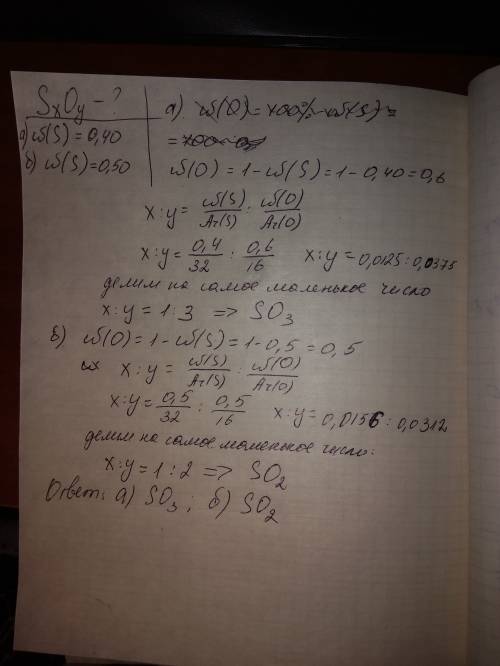 SxOy - ?
а) ω(S) = 0,40
б) ω(S) = 0,50
а) ω(O) = 100% - ω(S) =
=
ω(O) = 1 - ω(S) = 1 - 0,40 = 0,6
x : y = ω(S)/Ar(S) : ω(O)/Ar(O)
x : y = 0,4/32 : 0,6/16 x : y = 0,0125 : 0,0375
делим на самое маленькое число
x : y = 1 : 3 => SO3
б) ω(O) = 1 - ω(S) = 1 - 0,5 = 0,5
x : y = ω(S)/Ar(S) : ω(O)/Ar(O)
x : y = 0,5/32 : 0,5/16 x : y = 0,0156 : 0,0312
делим на самое маленькое число:
x : y = 1 : 2 => SO2
Ответ: а) SO3 ; б) SO2